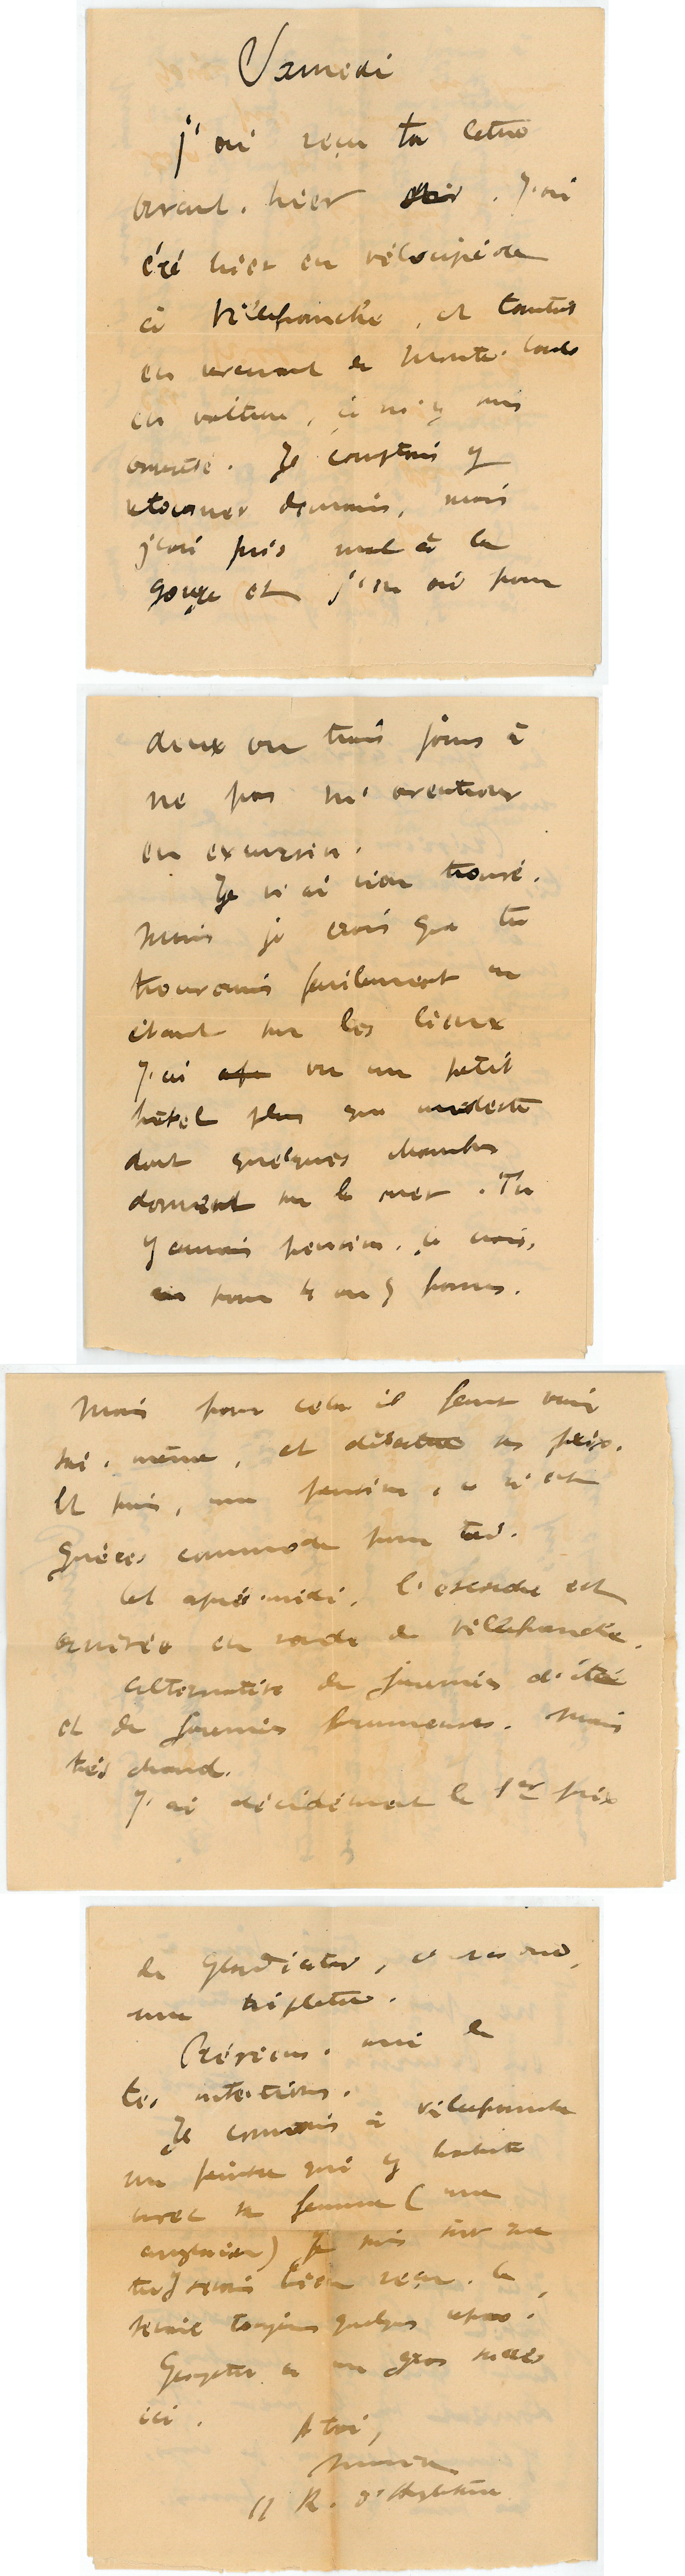 Samedi
J'ai reçu ta lettre
avant-hier soir. J'ai
été hier en vélocipède
à Villefranche, et tantôt
en revenant de Monte-Carlo
en voiture, je m'y suis
arrêté. Je comptais y
retourner demain, mais
j'ai pris mal à la
gorge et j'en ai pour
deux ou trois jours à
ne pas m'aventurer
en excursion.
Je n'ai rien trouvé.
Mais je crois que tu
trouverais facilement en
étant sur les lieux
J'ai vu un petit
hôtel plus que modeste
dont quelques chambres
donnent sur la mer. Tu
y aurais pension, je crois,
pour 4 ou 5 francs.
Mais pour cela il faut voir
soi-même, et débattre les prix.
Et puis, une pension, ce n'est
guères commode pour toi.
Cet après-midi, l'escadre est
arrivée en rade de Villefranche.
Alternative de journées d'été
et de journées brumeuses. Mais
très chaud.
J'ai décidément le 1er prix
de Gladiator, ce sera
une triplette.
Préviens-moi de
tes intentions.
Je connais à Villefranche
un peintre qui y habite
avec sa femme (une
) Je suis sûr que
tu y serais bien reçu. Ce
serait toujours quelque chose.
Georgette a un gros succès
ici.
A toi,
11 R. d'Angleterre